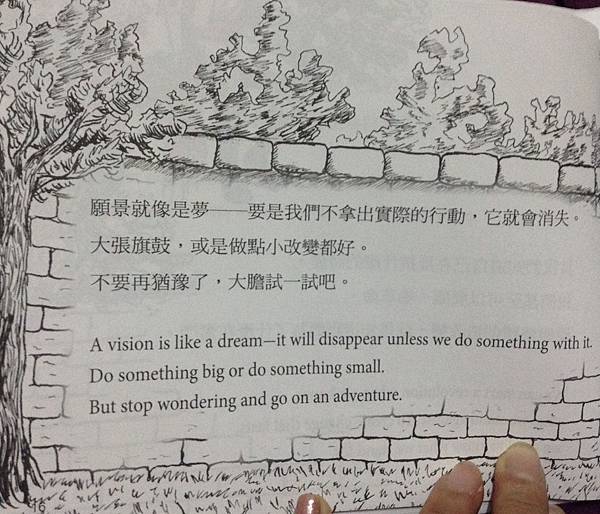 願景就像是夢——要是我們不拿出實際的行動，它就會消失。
大張旗鼓，或是做點小改變都好。
不要再猶豫了，大膽試一試吧。
A vision is like a dream—it will disappear unless we do something with it.
Do something big or do something small.
But stop wondering and go on an adventure.
16